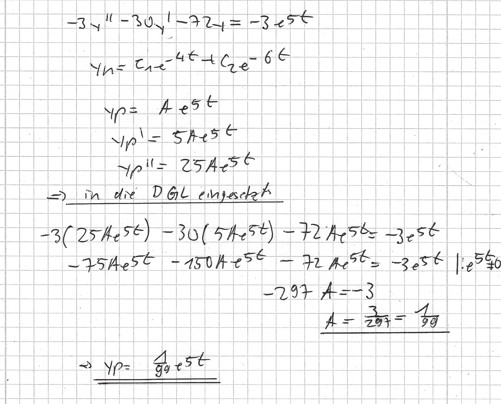 -3y'' -30y' -72y = -3e^5t
yh = C1e^-4t + C2e^-6t
yp = A e^5t
yp' = 5Ae^5t
yp'' = 25Ae^5t
=> in die DGL eingesetzt
-3(25Ae^5t) -30(5Ae^5t) -72Ae^5t = -3e^5t
-75Ae^5t -150Ae^5t -72Ae^5t = -3e^5t |:e^5t≠0
-297 A = -3
A = 3/297 = 1/99
=> yp = 1/99 e^5t